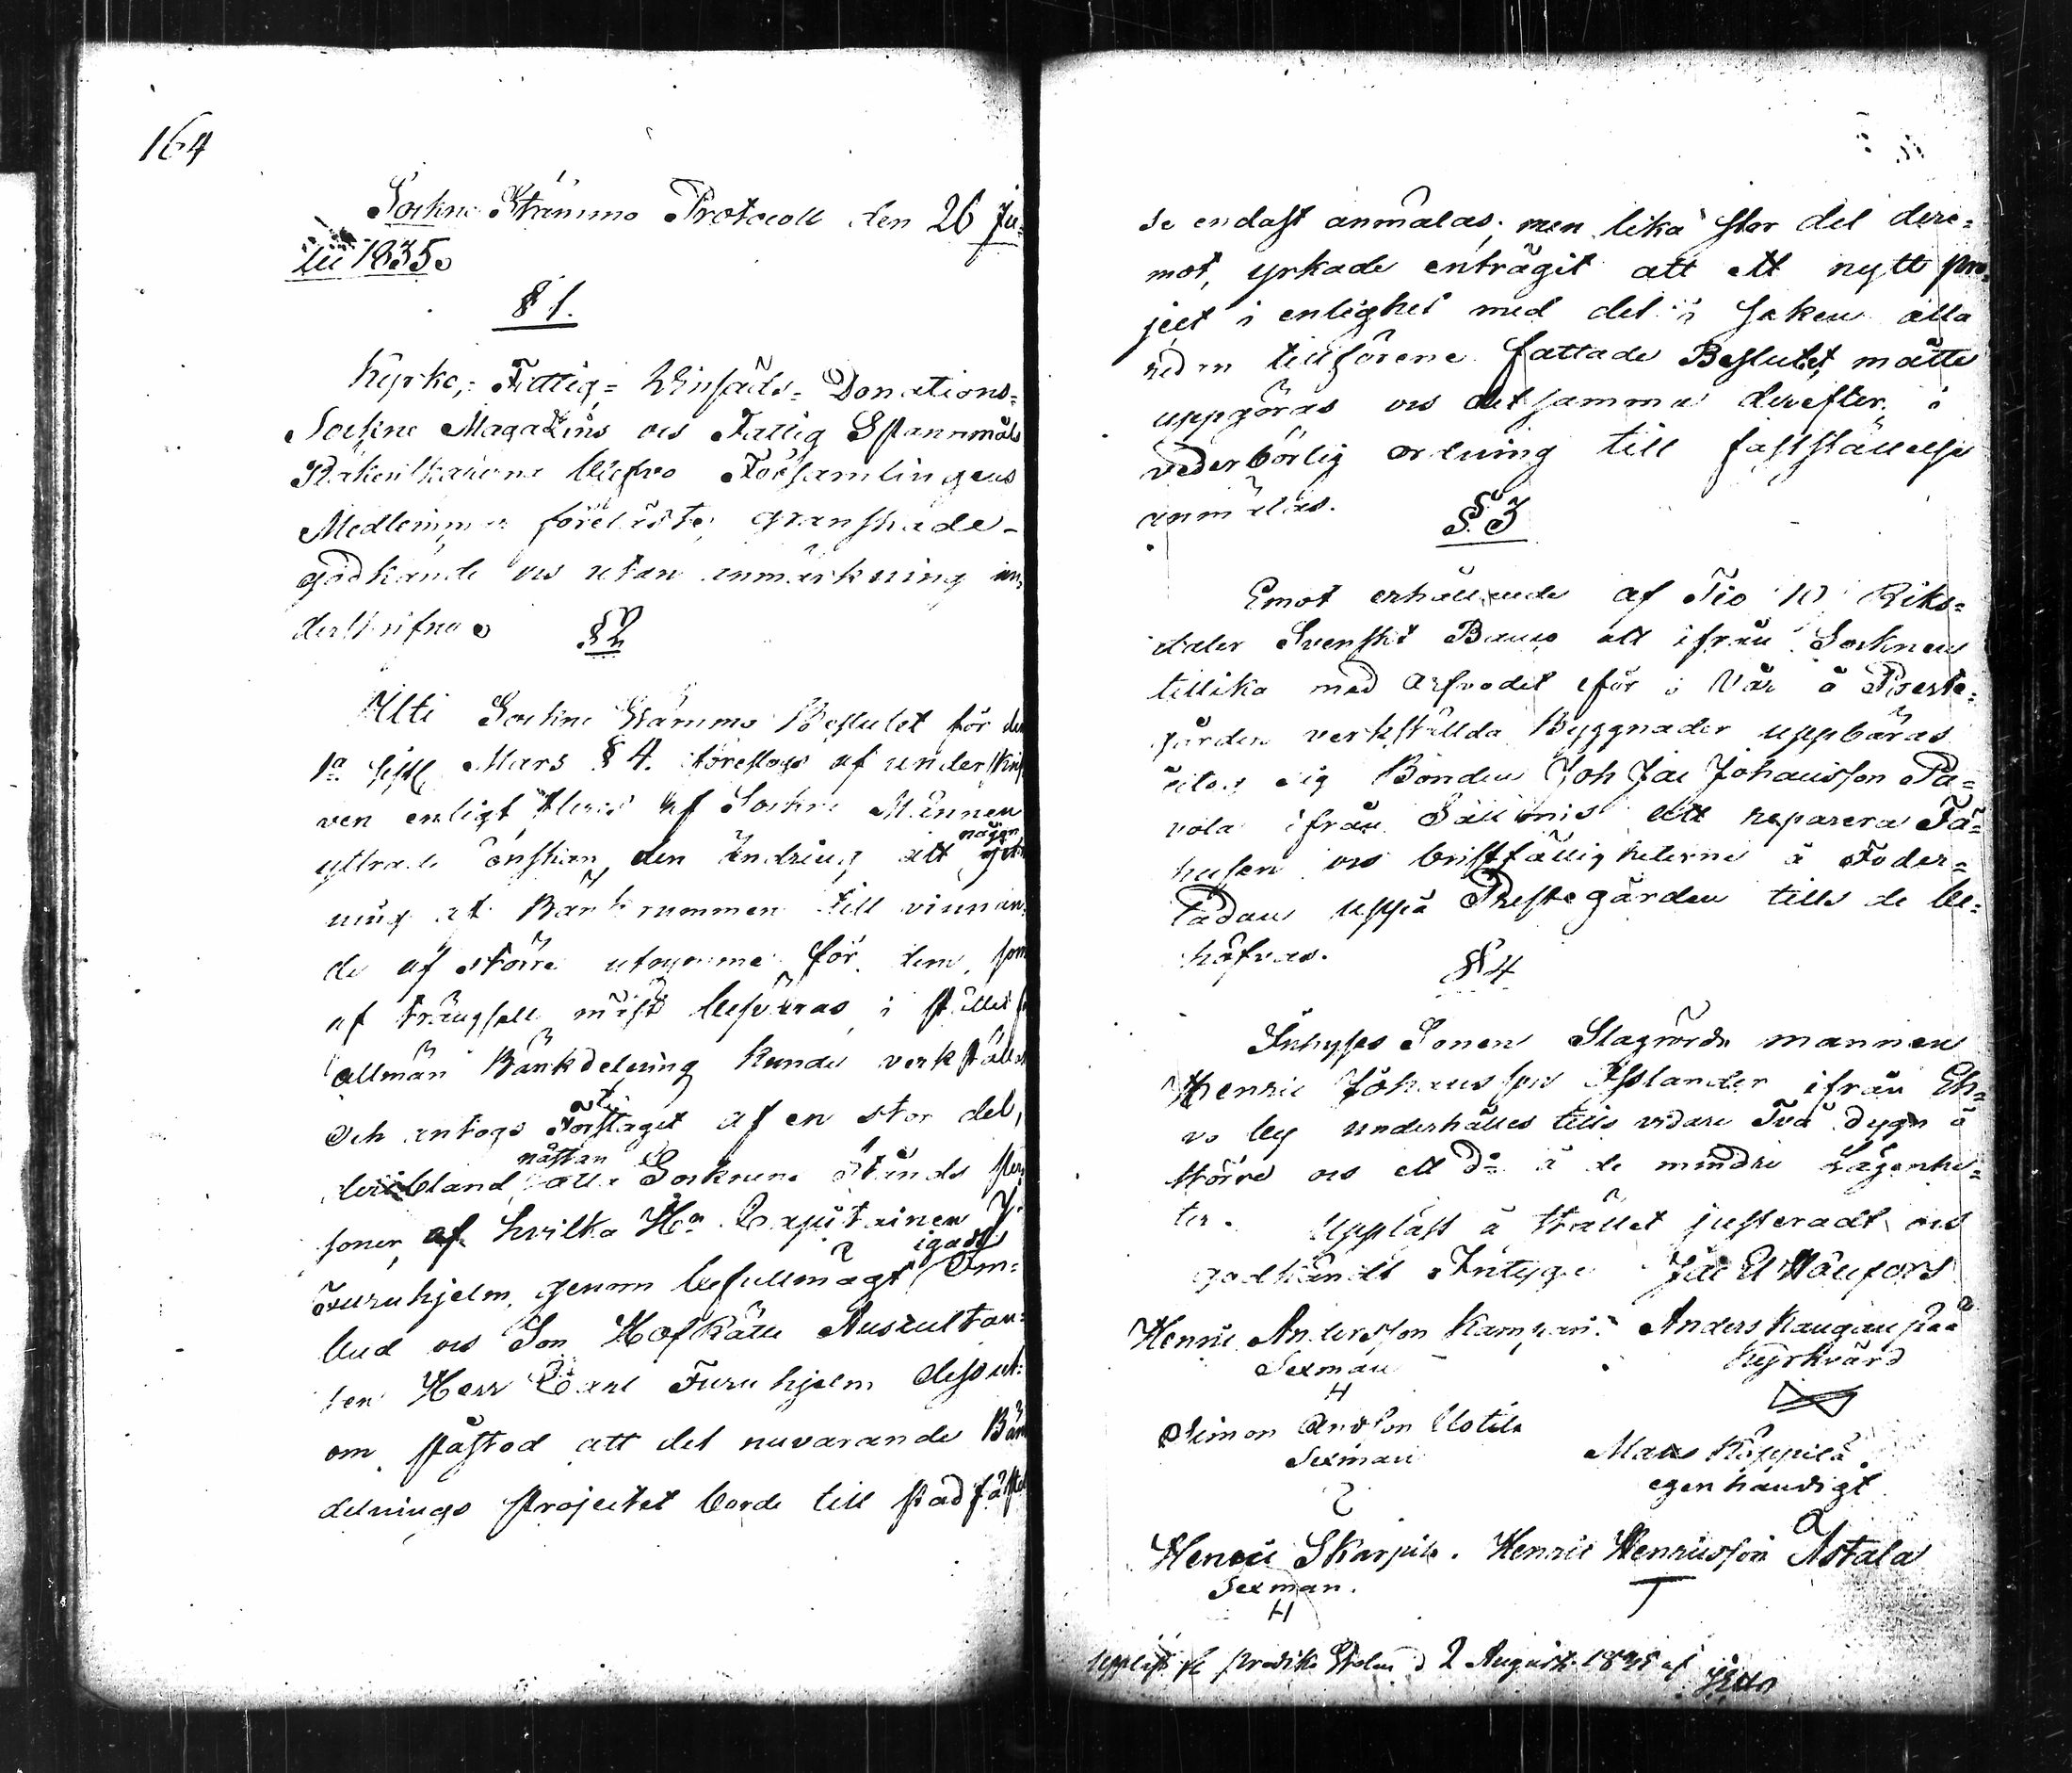 164
Sockne Stämmo Protocoll den 26 Ju-
lii 1835.
§ 1.
Kyrko-, Fattig- Donations-
Sockne Magazins och Fattig Spannmåls
Räkenskaperne blefvo Församlingens
Medlemmar föreläste, granskade-
godkände och utan anmärkning un-
derskrifne.
§ 2
Uti Sockne Stämmo Beslutet för den
1a sistl. Mars § 4. föreslogs af underskrif-
ven enligt fleres af Sockne Männen
yttrade önskan, den ändring att någon
ning af Bänkrummen till vinnan-
de af större utrymme för dem, som
af trängsell mäst besväras, i stället för
allmän Bänkdelning kunde verkställas
Och antogs Förslaget af en stor del,
deribland nästan alla Socknens Stånds per-
soner, af hvilka Hn Capitainen
Furuhjelm, genom befullmägtigadt Om-
bud och Son Hofrätts Auscultan-
ten Herr Carl Furuhjelm dess ut-
om påstod att det nuvarande Bänk
delnings projectet borde till stadfästel
se endast anmälas; men lika stor del dere-
mot, yrkade enträgit att ett nytt pro-
ject i enlighet med det i saken alla
redan tillförene fattade Beslutet, måtte
uppgöras och detsamma derefter i
vederbörlig ordning till fastställelse
anmälas.
§ 3
Emot erhållande af Tio 10 Riks-
daler Svenskt Banco att ifrån Socknen
tillika med arfvodet för i Vår å Preste-
gården verkställda Byggnader uppbäras
åtog sig Bonden Joh Jac Johansson Pa-
vola ifrån att reparera Fä-
husen och bristfälligheterne å Foder-
ladan uppå Prestegården tills de be-
höfvas.
§ 4
Inhyses Sonen Slagrörde mannen
Henric Johansson Isslander ifrån
by underhålles tills vidare Två dygn å
större och ett d:o å de mindre lägenhe-
ter.
Uppläst å stället justeradt och
godkändt Intyga
Henric Andersson Anders
Sexman Kyrkvärd
H
Simon Andsson
Sexman Mats Käppilä
egenhändigt
Henric Skarpik. Henric Henricsson Åstala
Sexman.
H
Uppläst fr Predik. Stolen d 2 Augusti 1835 af